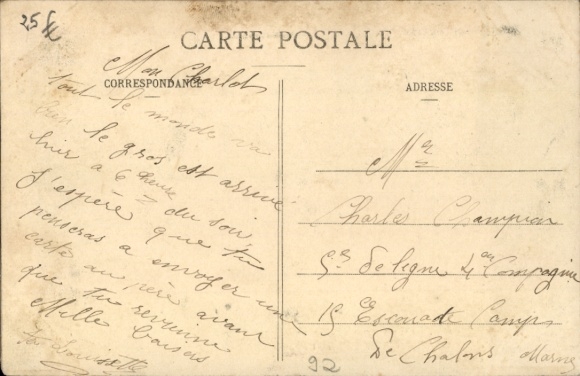 25
CARTE POSTALE
CORRESPONDANCE
Mon Charlot
tout le monde va
bien le gros est arrivé
hier a 6 heure
du soir
J'espère que tu
penseras a envoyer une
carte au père avant
que tu revienne
Mille baisers
ADRESSE
Mr
Charles Champion
de ligne 4 Compagnie
15 Escouade Camp
De Chalons Marne
92